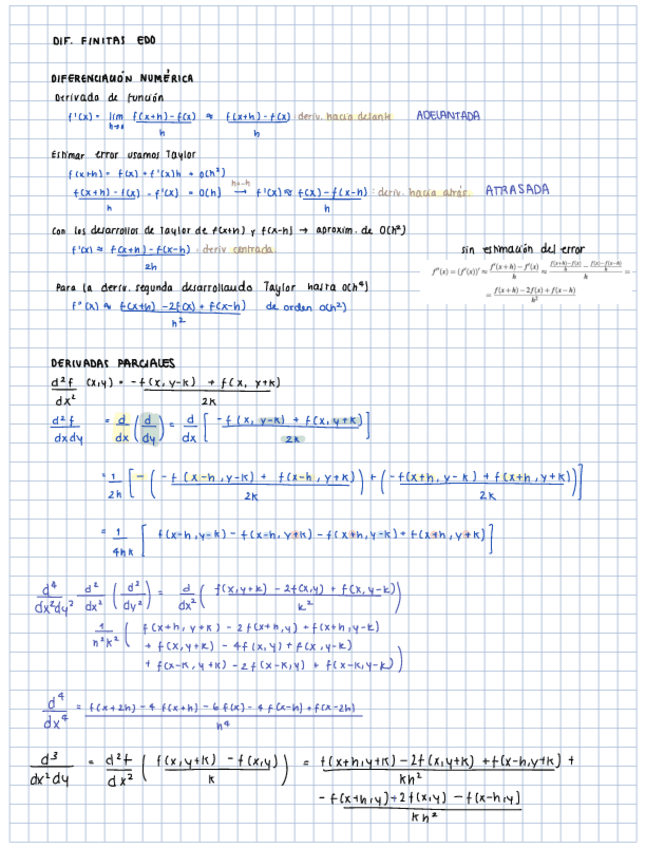 DIF. FINITAS EDO
DIFERENCIACIÓN NUMÉRICA
Derivada de función
f'(x) = lim h→0 (f(x+h) - f(x))/h ≈ (f(x+h) - f(x))/h : deriv. hacia delante ADELANTADA
Estimar error usamos Taylor
f(x+h) = f(x) + f'(x)h + O(h²)
(f(x+h) - f(x))/h - f'(x) = O(h) h=-h → f'(x) ≈ (f(x) - f(x-h))/h : deriv. hacia atrás. ATRASADA
Con los desarrollos de Taylor de f(x+h) y f(x-h) → aproxim. de O(h²)
f'(x) ≈ (f(x+h) - f(x-h))/2h : deriv centrada
sin estimación del error
f''(x) = (f'(x))' ≈ (f'(x+h) - f'(x))/h ≈ ((f(x+h)-f(x))/h - (f(x)-f(x-h))/h)/h =
= (f(x+h) - 2f(x) + f(x-h))/h²
Para la deriv. segunda desarrollando Taylor hasta O(h⁴)
f''(x) ≈ (f(x+h) - 2f(x) + f(x-h))/h² de orden O(h²)
DERIVADAS PARCIALES
d²f/dx² (x,y) = (-f(x, y-k) + f(x, y+k))/2k
d²f/dxdy = d/dx (d/dy) = d/dx [(-f(x, y-k) + f(x, y+k))/2k]
= 1/2h [-((-f(x-h, y-k) + f(x-h, y+k))/2k) + ((-f(x+h, y-k) + f(x+h, y+k))/2k)]
= 1/4hk [f(x-h, y-k) - f(x-h, y+k) - f(x+h, y-k) + f(x+h, y+k)]
d⁴/dx²dy² d²/dx² (d²/dy²) = d/dx² ((f(x,y+k) - 2f(x,y) + f(x,y-k))/k²)
1/h²k² (f(x+h, y+k) - 2f(x+h,y) + f(x+h,y-k)
+ f(x,y+k) - 4f(x,y) + f(x,y-k)
+ f(x-k, y+k) - 2f(x-k,y) + f(x-k,y-k))
d⁴/dx⁴ = (f(x+2h) - 4 f(x+h) - 6 f(x) - 4 f(x-h) + f(x-2h))/h⁴
d³/dx²dy = d²f/dx² ((f(x,y+k) - f(x,y))/k) = (f(x+h,y+k) - 2f(x,y+k) + f(x-h,y+k))/kh² +
(-f(x+h,y) + 2f(x,y) - f(x-h,y))/kh²